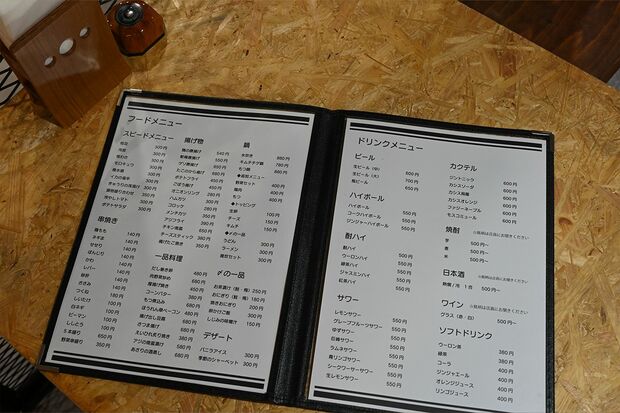 フードメニュー
スピードメニュー
枝豆 300円
冷奴 300円
塩だれ 300円
モロキュウ 350円
梅水晶
イカの塩辛 300円
冷やしトマト 300円
ポテトサラダ 350円
串焼き
鶏もも 140円
ネギま 140円
せせり 140円
ぼんじり 140円
かわ 140円
レバー 140円
砂肝 140円
ささみ 140円
つくね 180円
しいたけ 140円
白ネギ 140円
ピーマン 140円
ししとう 140円
5本盛り 650円
野菜串盛り 350円
揚げ物
鶏の唐揚げ 540円
軟骨唐揚げ 550円
ゲソ唐揚げ
たこのから揚げ
ポテトフライ
ごぼう揚げ
オニオンリング
ハムカツ
コロッケ
メンチカツ
アジフライ
チキン南蛮
チーズスティック 380円
揚げたこ焼き 350円
一品料理
だし巻き卵 480円
月見つくね
厚揚げ焼き
コーンバター 380円
もつ煮込み
ほうれん草ベーコン
揚げ出し豆腐 480円
さつま揚げ
えいひれ炙り焼き
アジの南蛮漬け
あさりの酒蒸し 680円
鍋
水炊き 880円
キムチチゲ鍋 780円
もつ鍋
◆追加メニュー
野菜セット
鶏肉
もつ
◆トッピング
豆腐 100円
チーズ
キムチ
◆〆の一品
うどん
ラーメン 300円
雑炊セット 300円
〆の一品
お茶漬け(鮭・梅) 250円
おにぎり(鮭・梅) 180円
焼きおにぎり 200円
卵かけご飯 300円
しじみの味噌汁 150円
デザート
バニラアイス 300円
季節のシャーベット 300円
ドリンクメニュー
ビール
生ビール(中) 600円
生ビール(大)
瓶ビール 650円
ハイボール
ハイボール
コークハイボール 550円
ジンジャーハイボール 550円
酎ハイ
酎ハイ
ウーロンハイ 550円
緑茶ハイ 550円
ジャスミンハイ 550円
紅茶ハイ 550円
サワー
レモンサワー 550円
グレープフルーツサワー 550円
ゆずサワー 550円
巨峰サワー 550円
ラムネサワー 550円
青リンゴサワー 550円
シークワーサーサワー 550円
生レモンサワー 550円
カクテル
ジントニック 600円
カシスソーダ 600円
カシス烏龍 600円
カシスオレンジ 600円
ファジーネーブル 600円
モスコミュール 600円
焼酎 ※銘柄は店員にお聞きください
芋 500円〜
麦 500円〜
米 500円〜
日本酒 ※銘柄は店員にお聞きください
熱燗/冷 1合 500円〜
ワイン ※銘柄は店員にお聞きください
グラス(赤・白) 500円〜
ソフトドリンク
ウーロン茶 380円
緑茶 380円
コーラ 400円
ジンジャエール 400円
オレンジジュース 400円
リンゴジュース 400円